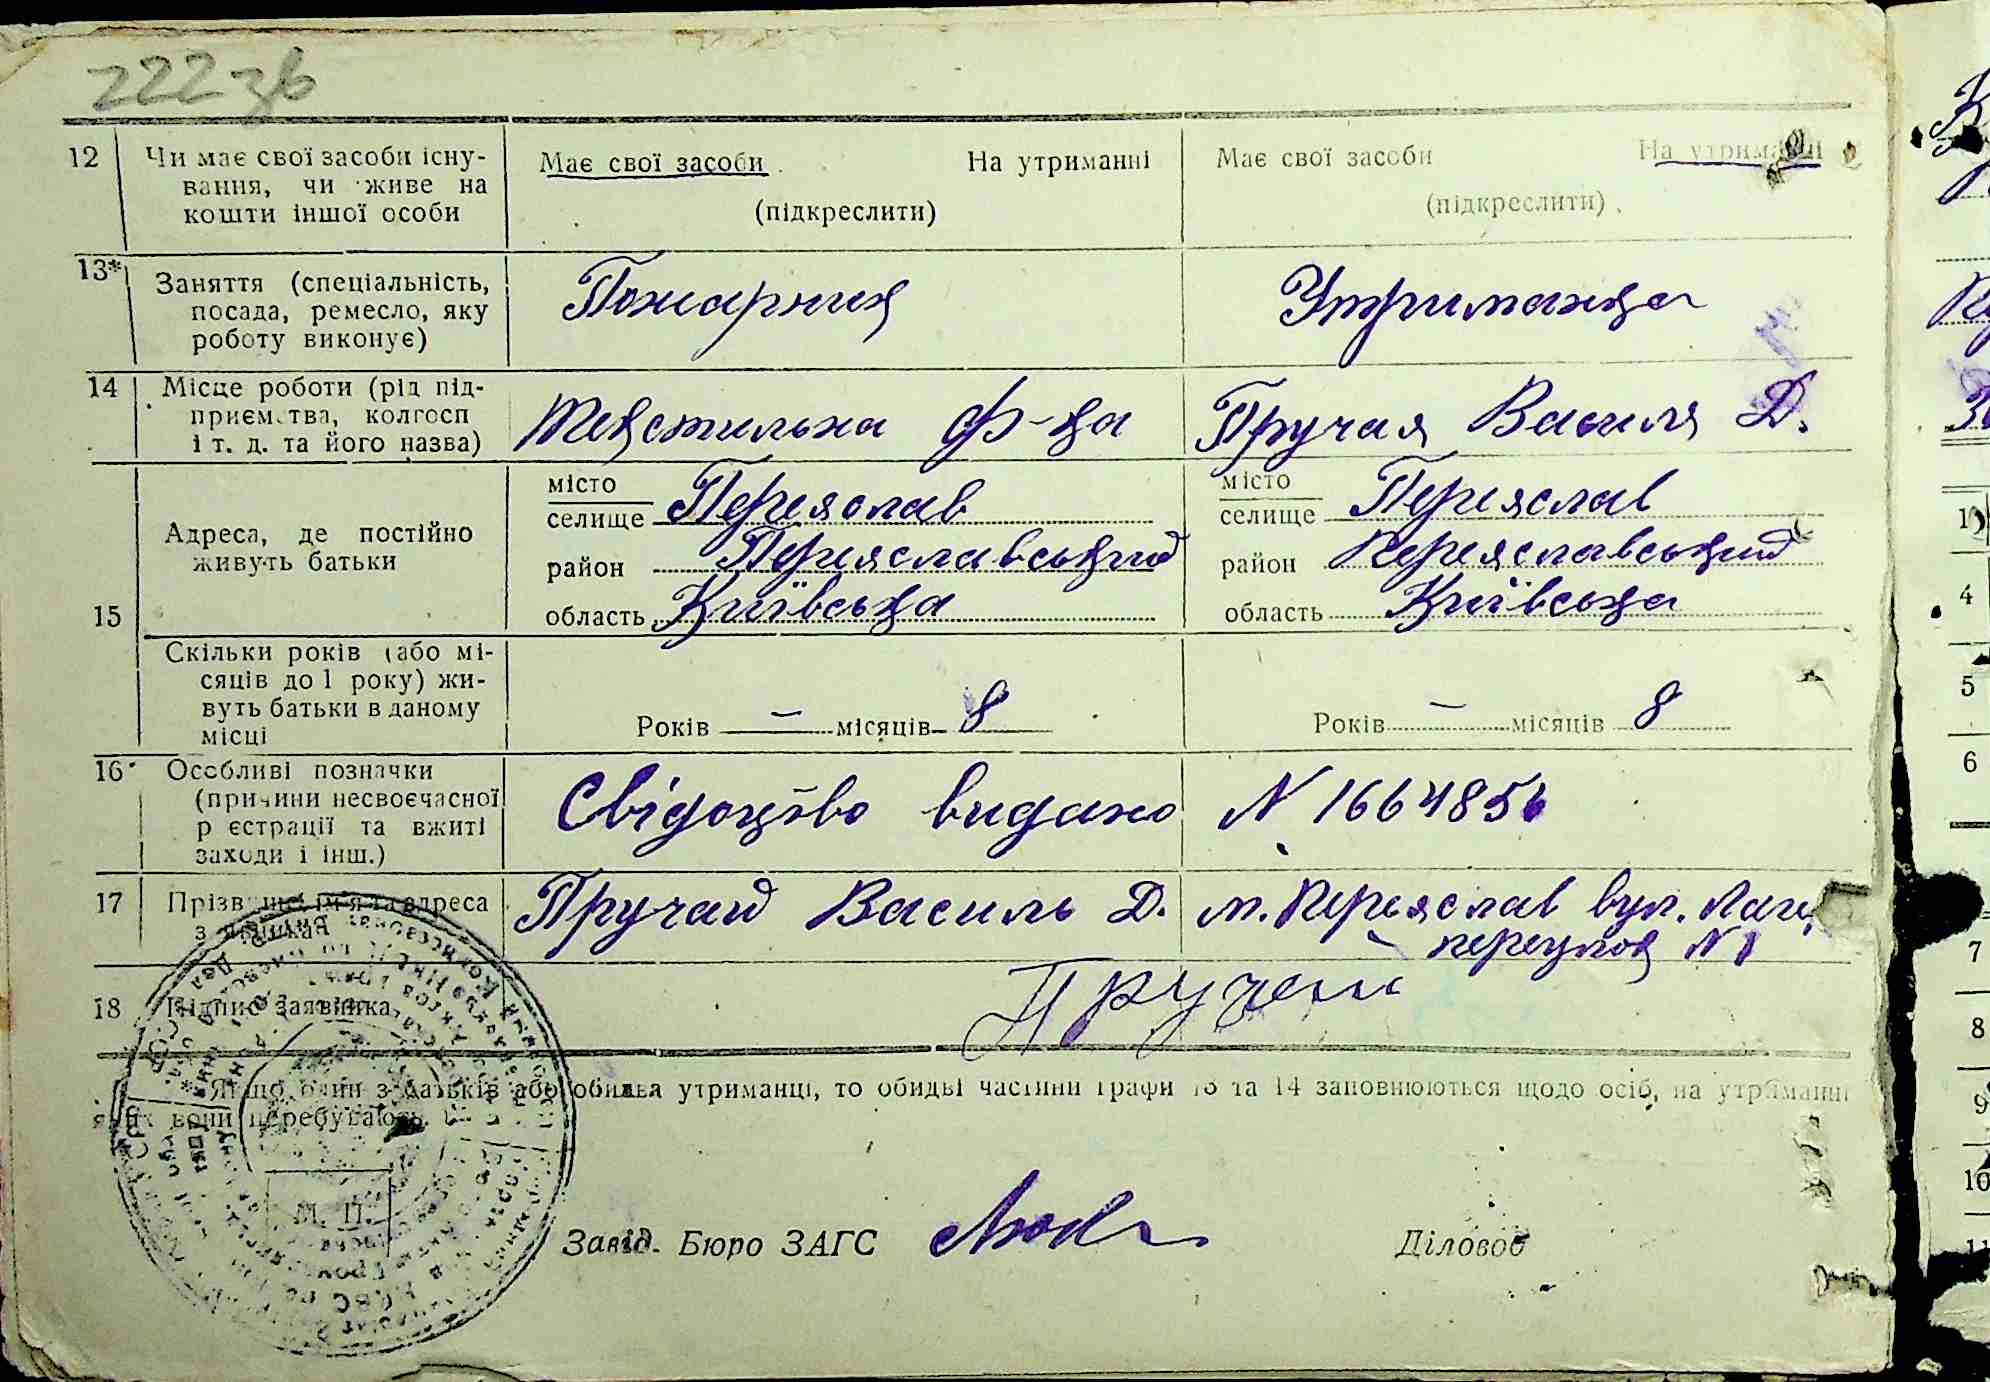 222 зв
12 Чи має свої засоби існу-
вання, чи живе на
кошти іншої особи
Має свої засоби На утриманні
(підкреслити)
Має свої засоби На утриманні
(підкреслити)
13* Заняття (спеціальність,
посада, ремесло, яку
роботу виконує)
Пожарник
Утриманка
14 Місце роботи (рід під-
приємства, колгосп
і т. д. та його назва)
Текстильна ф-ка
Пручая Василя Д.
15
Адреса, де постійно
живуть батьки
місто
селище Переяслав
район Переяславський
область Київська
місто
селище Переяслав
район Переяславський
область Київська
Скільки років (або мі-
сяців до 1 року) жи-
вуть батьки в даному
місці
Років — місяців 8
Років — місяців 8
16 Особливі позначки
(причини несвоєчасної
реєстрації та вжиті
заходи і інш.)
Свідоцтво видано N 1664856
17 Прізвище, ім'я та адреса
заявника
Пручай Василь Д. м. Переяслав вул.
переулок N 1
18 Підпис заявника
Пручай
* Якщо один з батьків або обидва утриманці, то обидві частини графи 13 та 14 заповнюються щодо осіб, на утриманні
яких вони перебувають.
М. П.
Завід. Бюро ЗАГС
Діловод
1
4
5
6
7
8
9
10
11